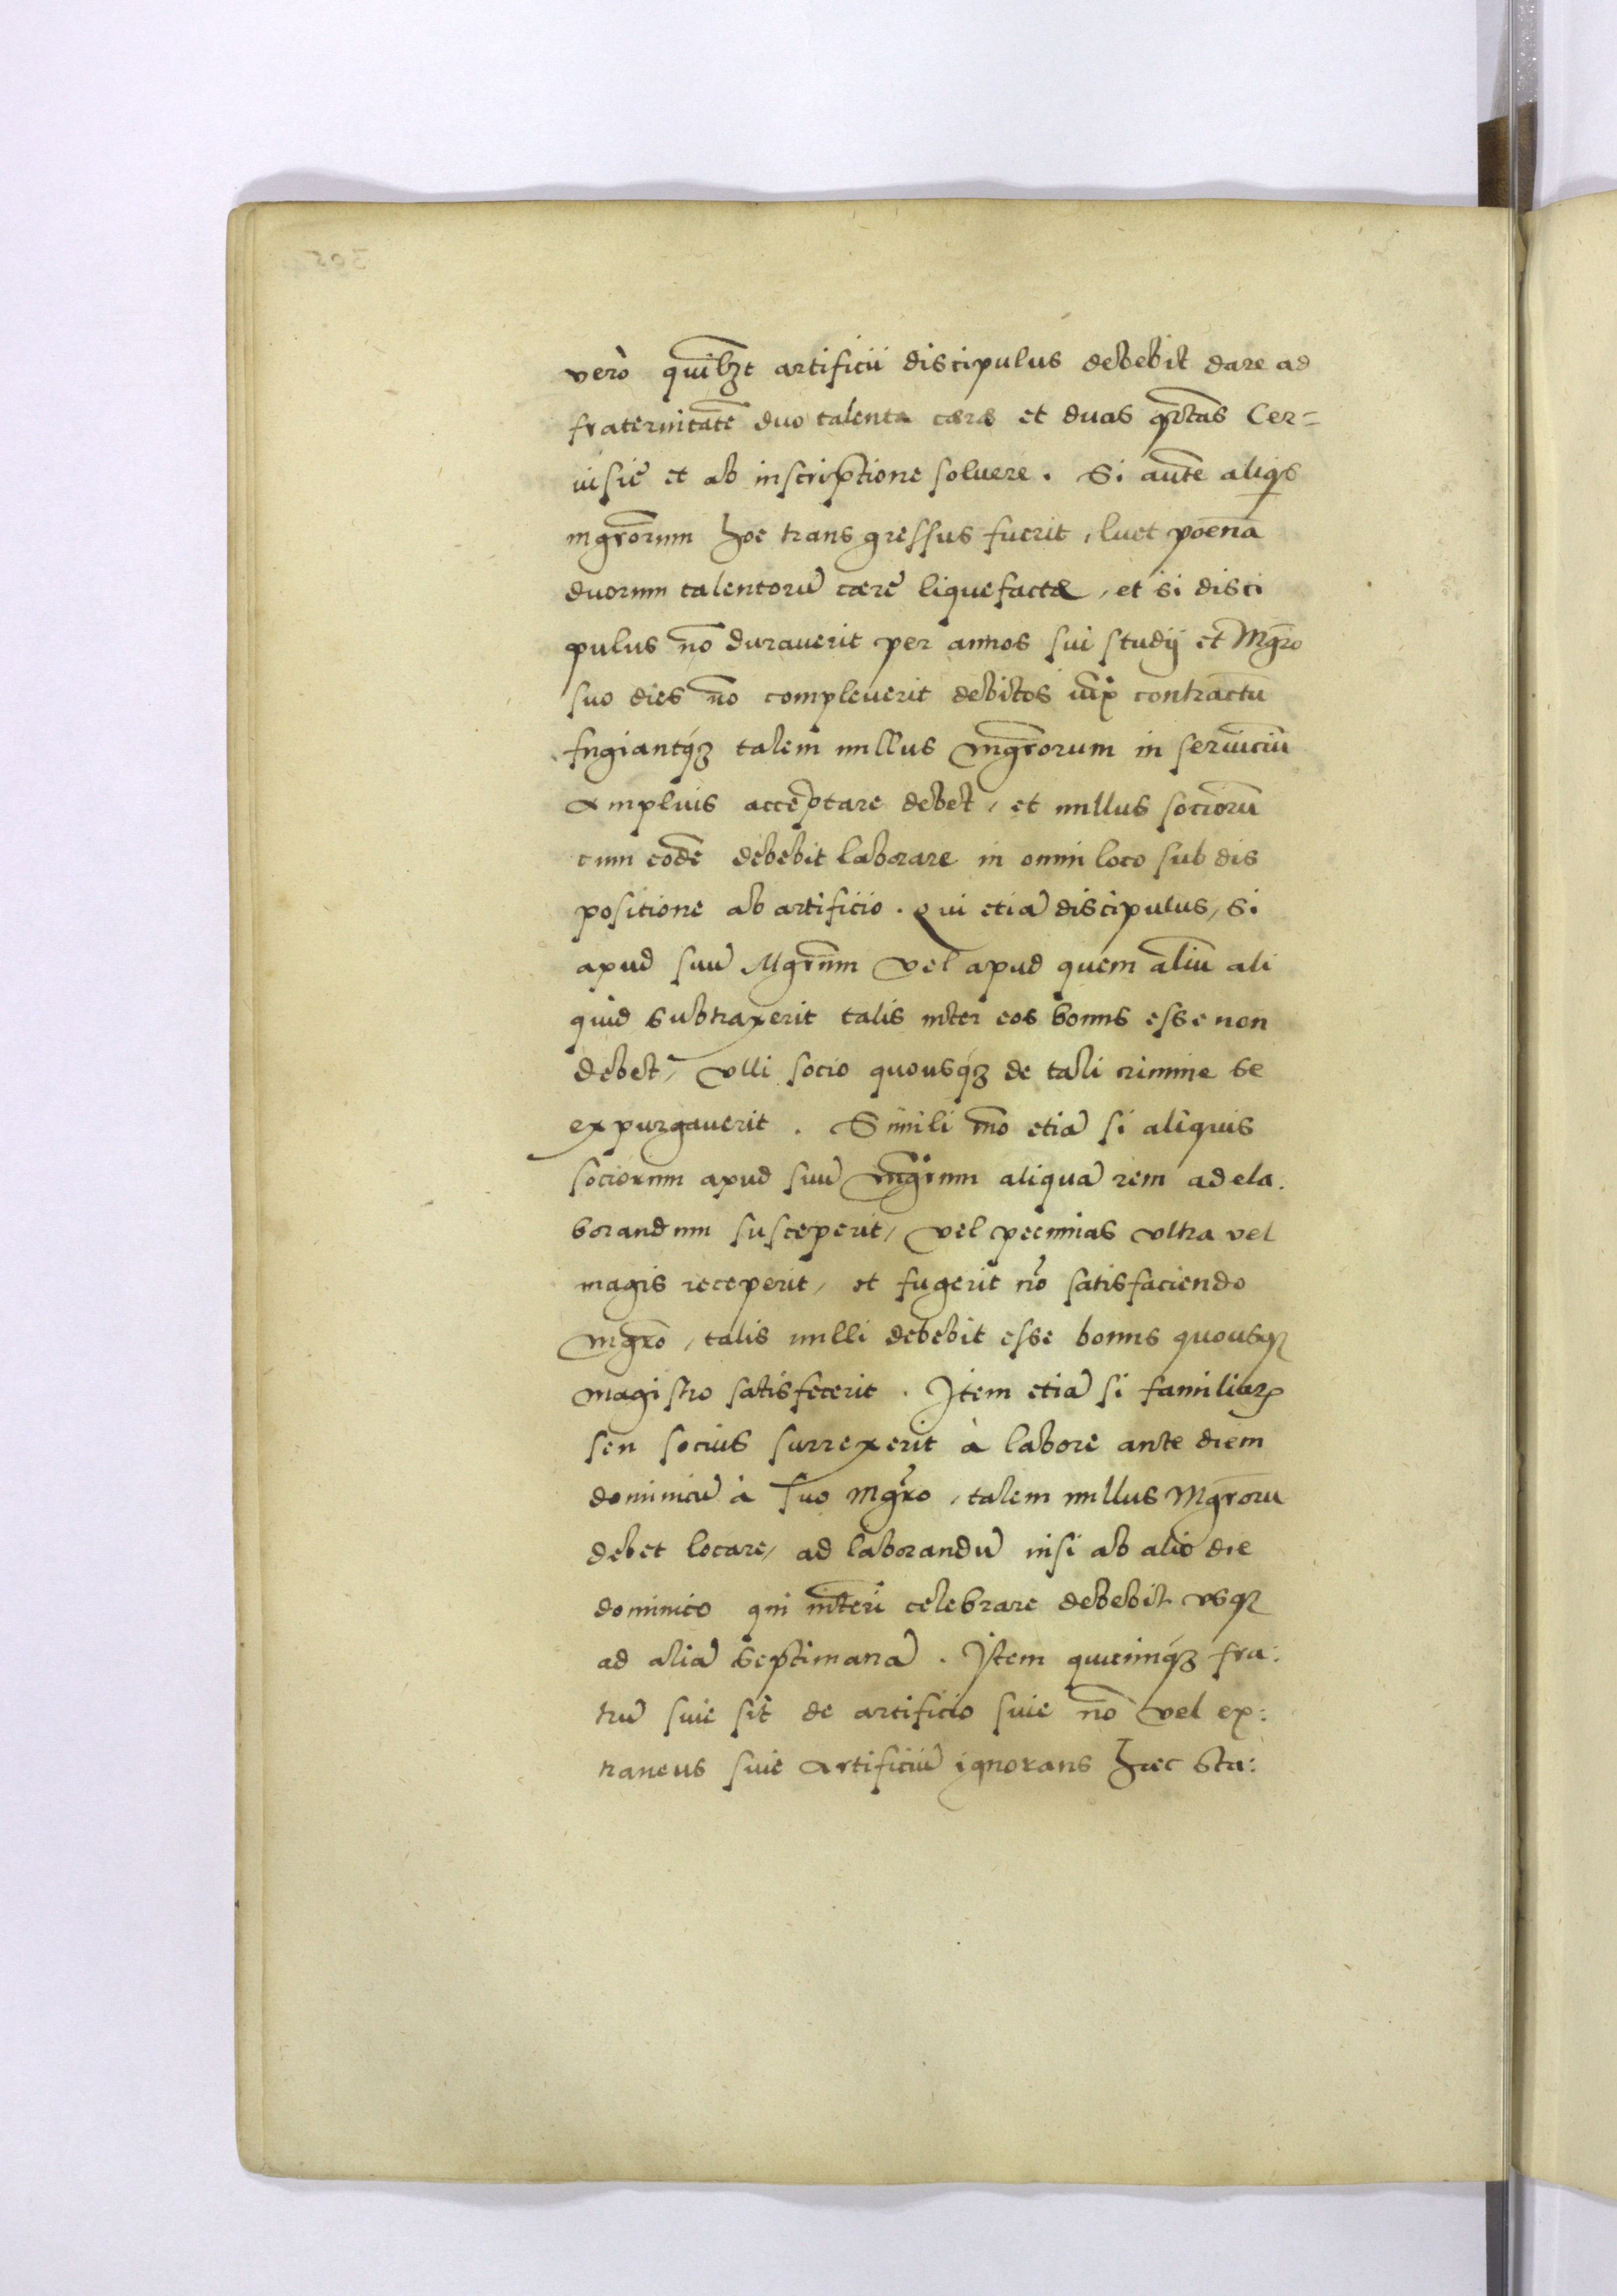 verò quilib3t artificii discipulus debebit dare ad
fraternitatē duo talenta caerae et duas qrtas Cer=
uisię et ab inscriptione soluere. Si autē aliqs
mgrorum hoc transgressus fuerit, luet poenā
duorum talentorū caerę liquefactae, et si disci
pulus nō durauerit per annos sui studij et Mgro
suo dies nō compleuerit debitos contractū
fugiantq3 talem nullus mgrorum in seruiciū
amplius acceptare debet, et nullus sociorū
cum eodē debebit laborare in omni loco sub dis
positione ab artificio. Qui etiā discipulus, si
apud suū Mgrum vel apud quem aliū ali
quid subtraxerit talis inter eos bonus esse non
debet, vlli socio quousq3 de tali crimine se
expurgauerit. Simili mō etiā si aliquis
sociorum apud suū mgrum aliquā rem ad ela:
borandum susceperit, vel pecunias vltra vel
magis receperit, et fugerit nō satisfaciendo
mgro, talis nulli debebit esse bonus quousq3
magistro satisfecerit. Item etiā si familiaris
seu socius surrexerit à labore ante diem
dominicū à suo mgro, talem nullus Mgrorū
debet locare, ad laborandū nisi ab alio die
dominico qui interī celebrare debebit vsq3
ad aliā septimanā. Item quicunq3 fra:
trū siue sit de artificio siue nō vel ex:
traneus siue artificiū ignorans haec sta: